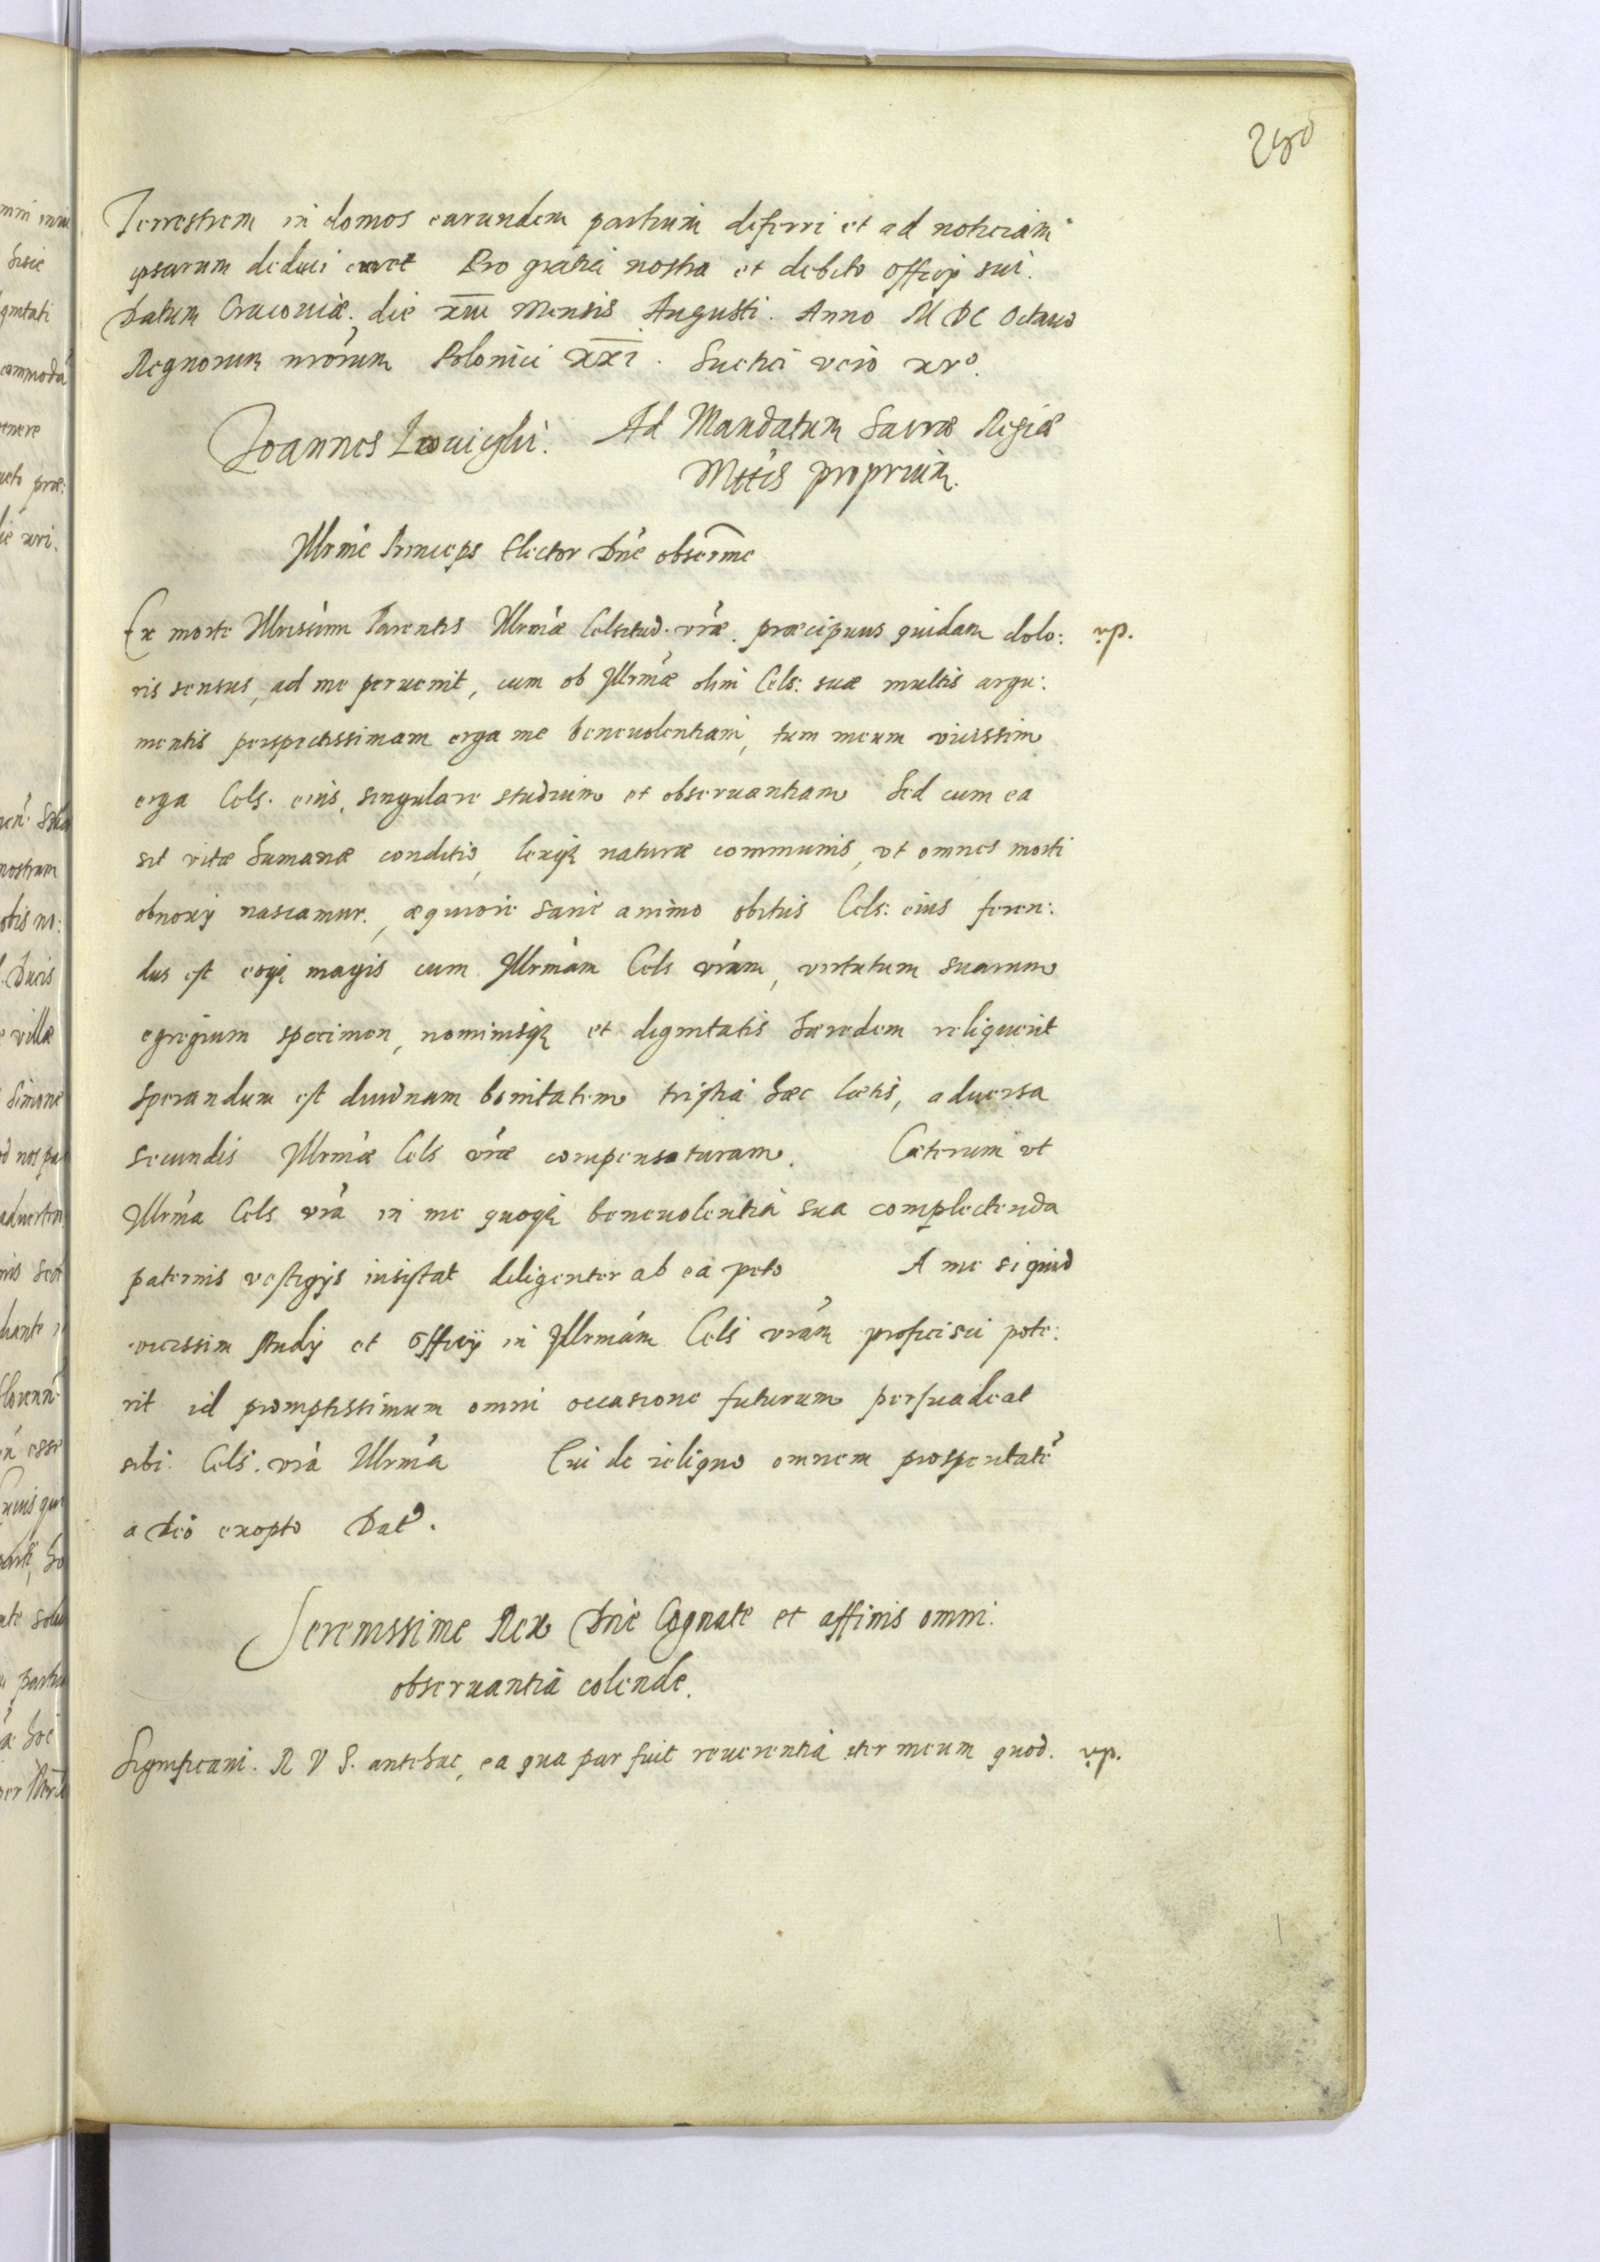 280
Terrestrem in domos earundem partium deferri et ad noticiam
ipsarum deduci curet Pro gratia nostra et debito officij sui.
Datum Cracoviæ. die xiii Mensis Augusti. Anno M DC Octavo
Regnorum nrorum Poloniei xxi. Suetici vero xvo.
Joannes Ad Mandatum Sacræ Regiæ
Mttis proprium.
Illrme Princeps Elector Dne obserme
Ex morte Illrissimi Parentis Illrmæ Celsitud. vræ. præcipuus quidam dolo: vp.
ris sensus, ad me peruenit, cum ob Illrmæ olim Cels: suæ multis argu:
mentis perspectissimam erga me beneuolentiam, tum meum vicissim
erga Cels. eius, singulare studium et obseruantiam Sed cum ea
sit vitæ humanæ conditio, lexq naturæ communis, vt omnes morti
obnoxij nascamur., æquiore sane animo obitus Cels: eius feren:
dus est eoq magis cum Illrmam Cels vram, virtutum suarum
egregium specimen, nominisq et dignitatis hæredem reliquerit
sperandum est diuinam bonitatem tristia hæc lætis, aduersa
secundis Illrmæ Cels vræ compensaturam. Cæterum vt
Illrma Cels vra in me quoq beneuolentia sua complectenda
paternis vestigijs insistat diligenter ab ea peto A me si quid
vicissim studij et officij in Illrmam Cels vram proficisci pote:
rit id promptissimum omni occasione futurum persuadeat
sibi. Cels. vra Illrma Cui de reliquo omnem prosperitate
a Deo exopto Dat.
Serenissime Rex Dne Cognate et affinis omni
obseruantia colende.
Significaui. R V S. antehac, ea qua par fuit reuerentia iter meum quod. vp.